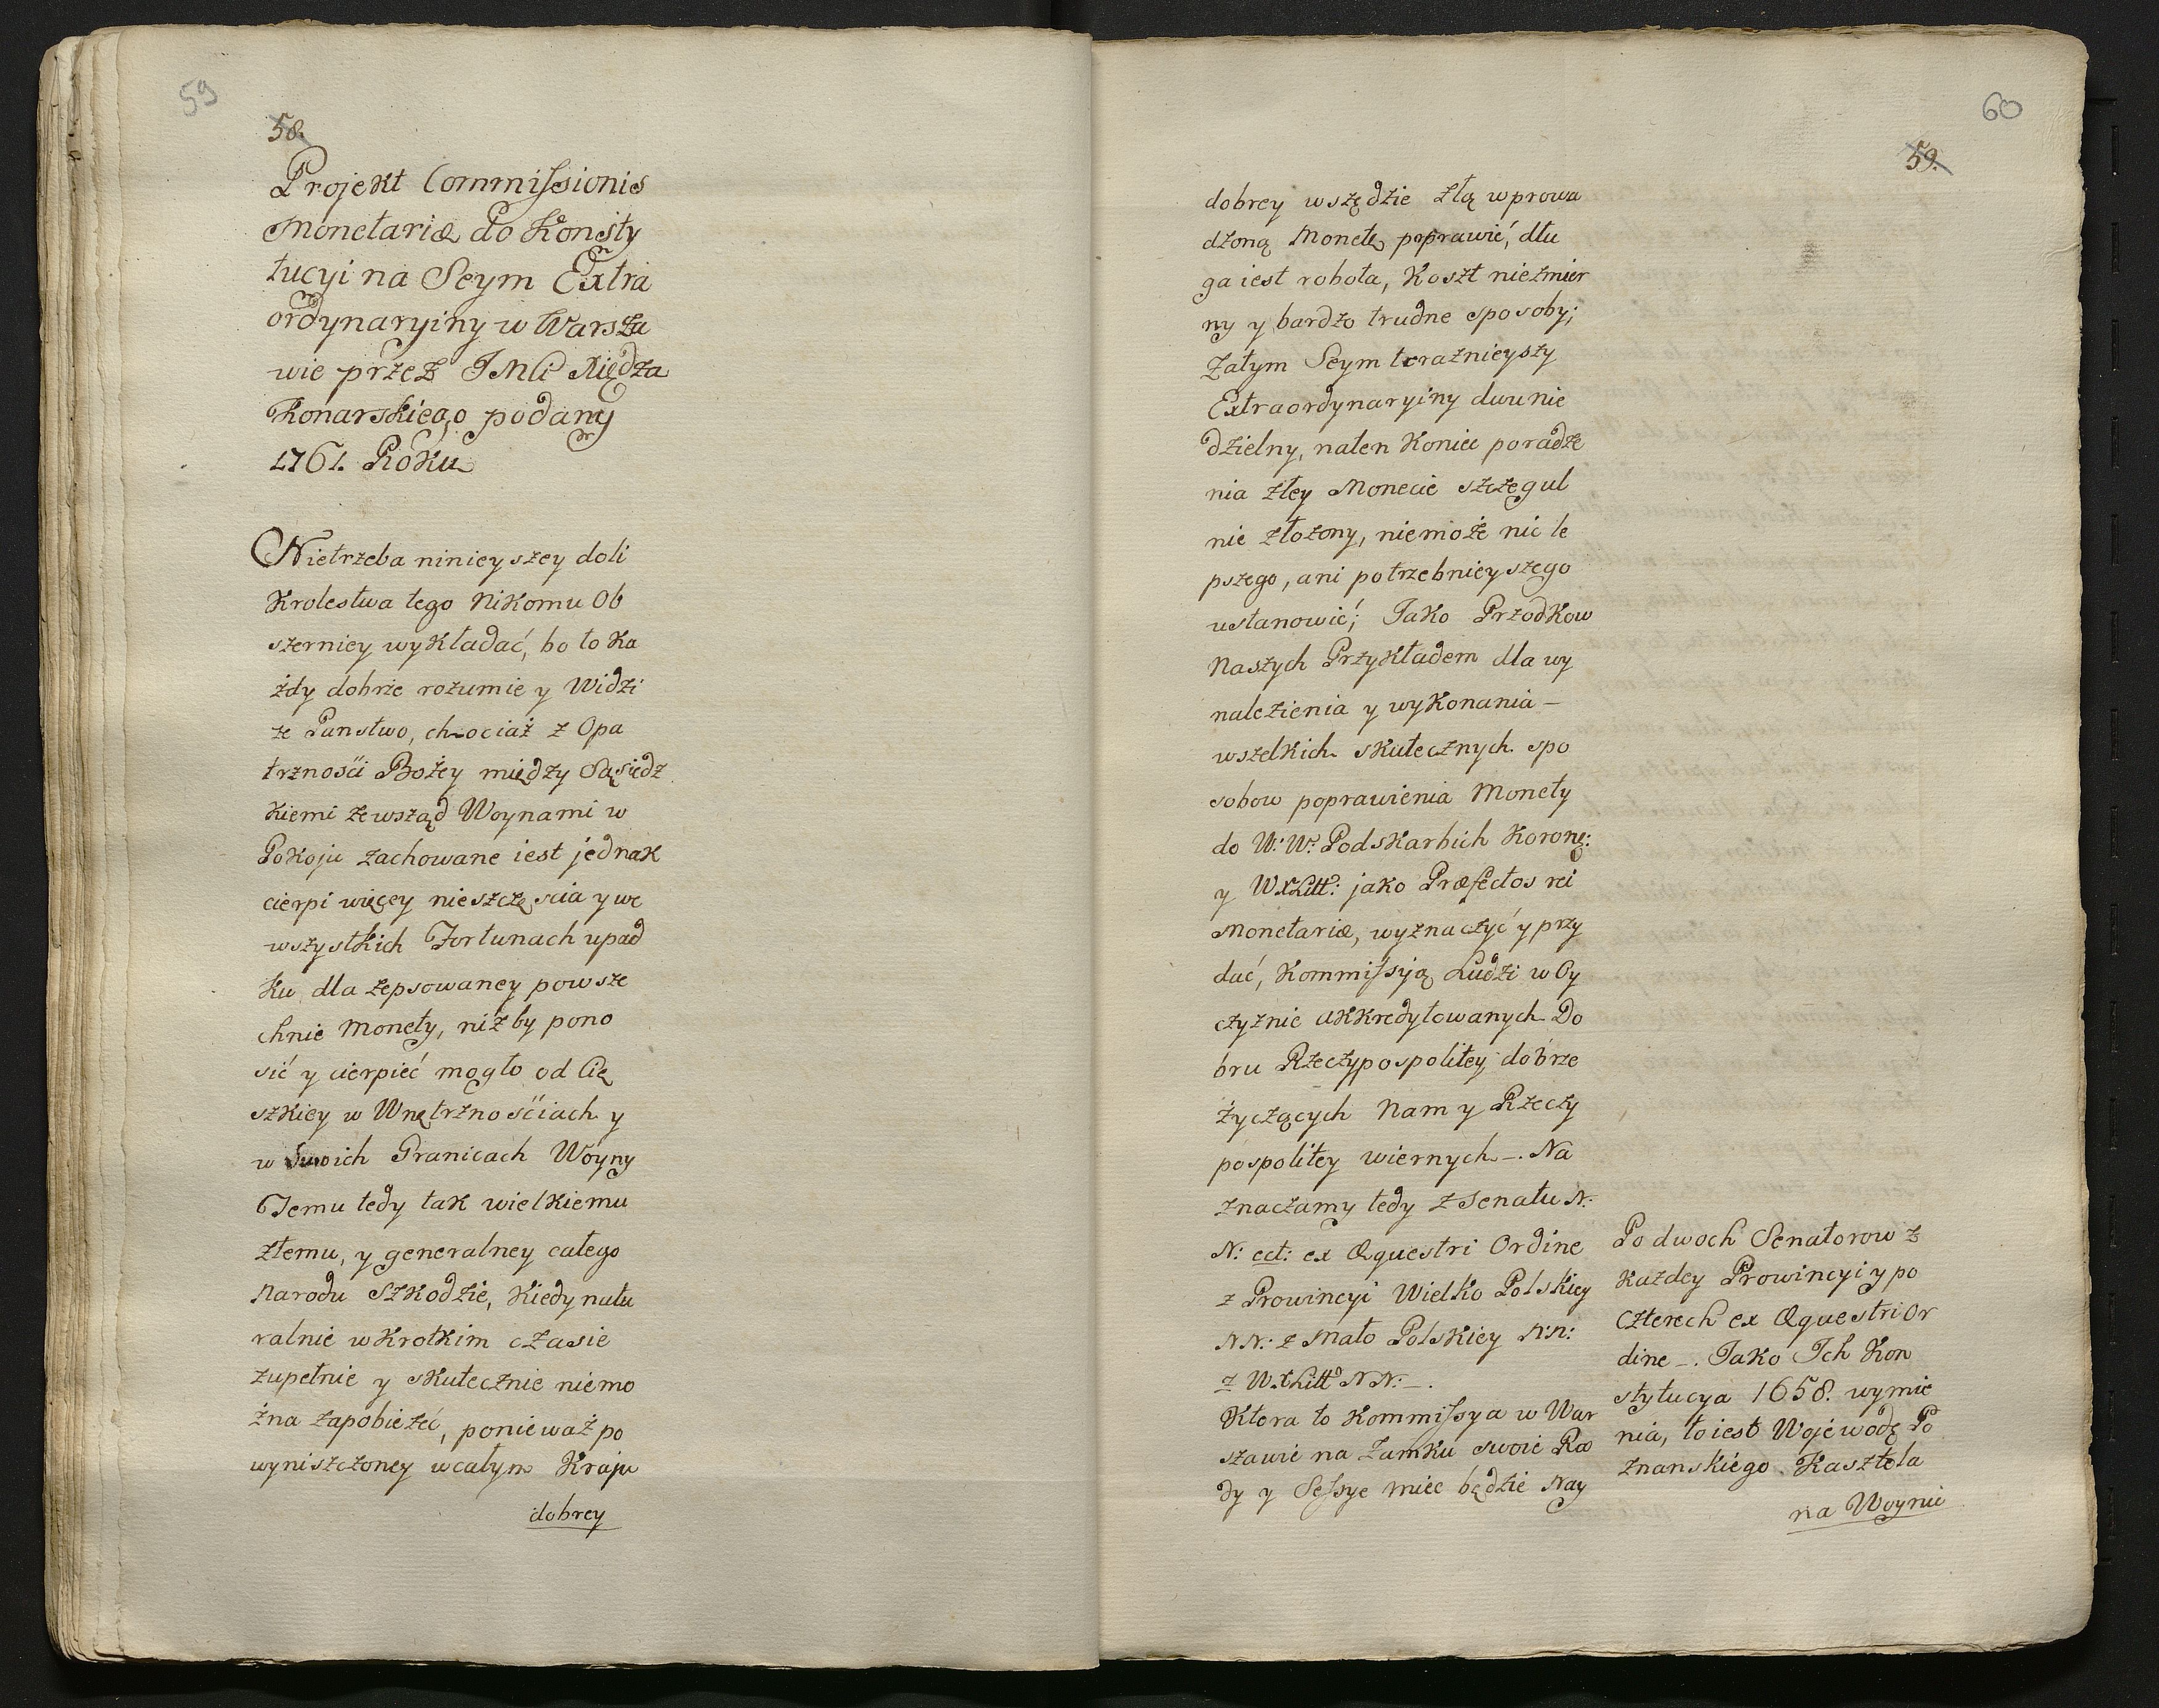 59
58.
Projekt Commissionis
Monetariæ do Konsty
tucyi na Seym Extra
ordynaryiny w Warsza
wie przez JMCi Xiędza
Konarskiego podany
1761. Roku
Nietrzeba ninieyszey doli
Krolestwa tego Nikomu Ob
szerniey wykładać, bo to Ka
żdy dobrze rozumie y Widzi
że Panstwo, chociaż z Opa
trzności Bożey między Sąsiedz
kiemi zewsząd Woynami w
Pokoju zachowane iest jednak
cierpi więcey nieszczęscia y we
wszystkich Fortunach upad
ku dla zepsowaney powsze
chnie Monety, niżby pono
sić y cierpieć mogło od Cię
szkiey w Wnętrznościach y
w Swoich Granicach Woyny
Temu tedy tak wielkiemu
złemu, y generalney całego
Narodu Szkodzie, Kiedy natu
ralnie w Krotkim czasie
zupełnie y skutecznie niemo
żna zapobieżeć, ponieważ po
wyniszczoney wcałym Kraju
dobrey
60
59.
dobrey wszędzie złą wprowa
dzoną Monetę poprawić, dłu
ga iest robota, Koszt niezmier
ny y bardzo trudne sposoby;
Zatym Seym teraznieyszy
Extraordynaryiny dwunie
dzielny, naten Koniec poradze
nia złey Monecie szczegul
nie złożony, niemoże nic le
pszego, ani potrzebnieyszego
ustanowić; Jako Przodkow
Naszych Przykładem dla wy
nalezienia y wykonania –
wszelkich skutecznych spo
sobow poprawienia Monety
do W: W: Podskarbich Koronę:
y WXLitt: jako Præfectos rei
Monetariæ, wyznaczyć y przy
dać, Kommissyją Ludzi w Oy
czyznie akkredytowanych Do
bru Rzeczypospolitey dobrze
życzących Nam y Rzeczy
pospolitey wiernych –. Na
znaczamy tedy z Senatu N:
N: ect: ex Æquestri Ordine
z Prowincyi Wielko Polskiey
N N: z Mało Polskiey N: N:
z WXLitt N N: –.
Ktora to Kommissya w War
szawie na Zamku swoie Ra
dy y Sessye miec będzie Nay
Po dwoch Senatorow z
Każdey Prowincyi y po
Czterech ex Æquestri Or
dine –. Jako Ich Kon
stytucya 1658. wymie
nia, to iest Wojewodę Po
znanskiego. Kasztela
na Woynic